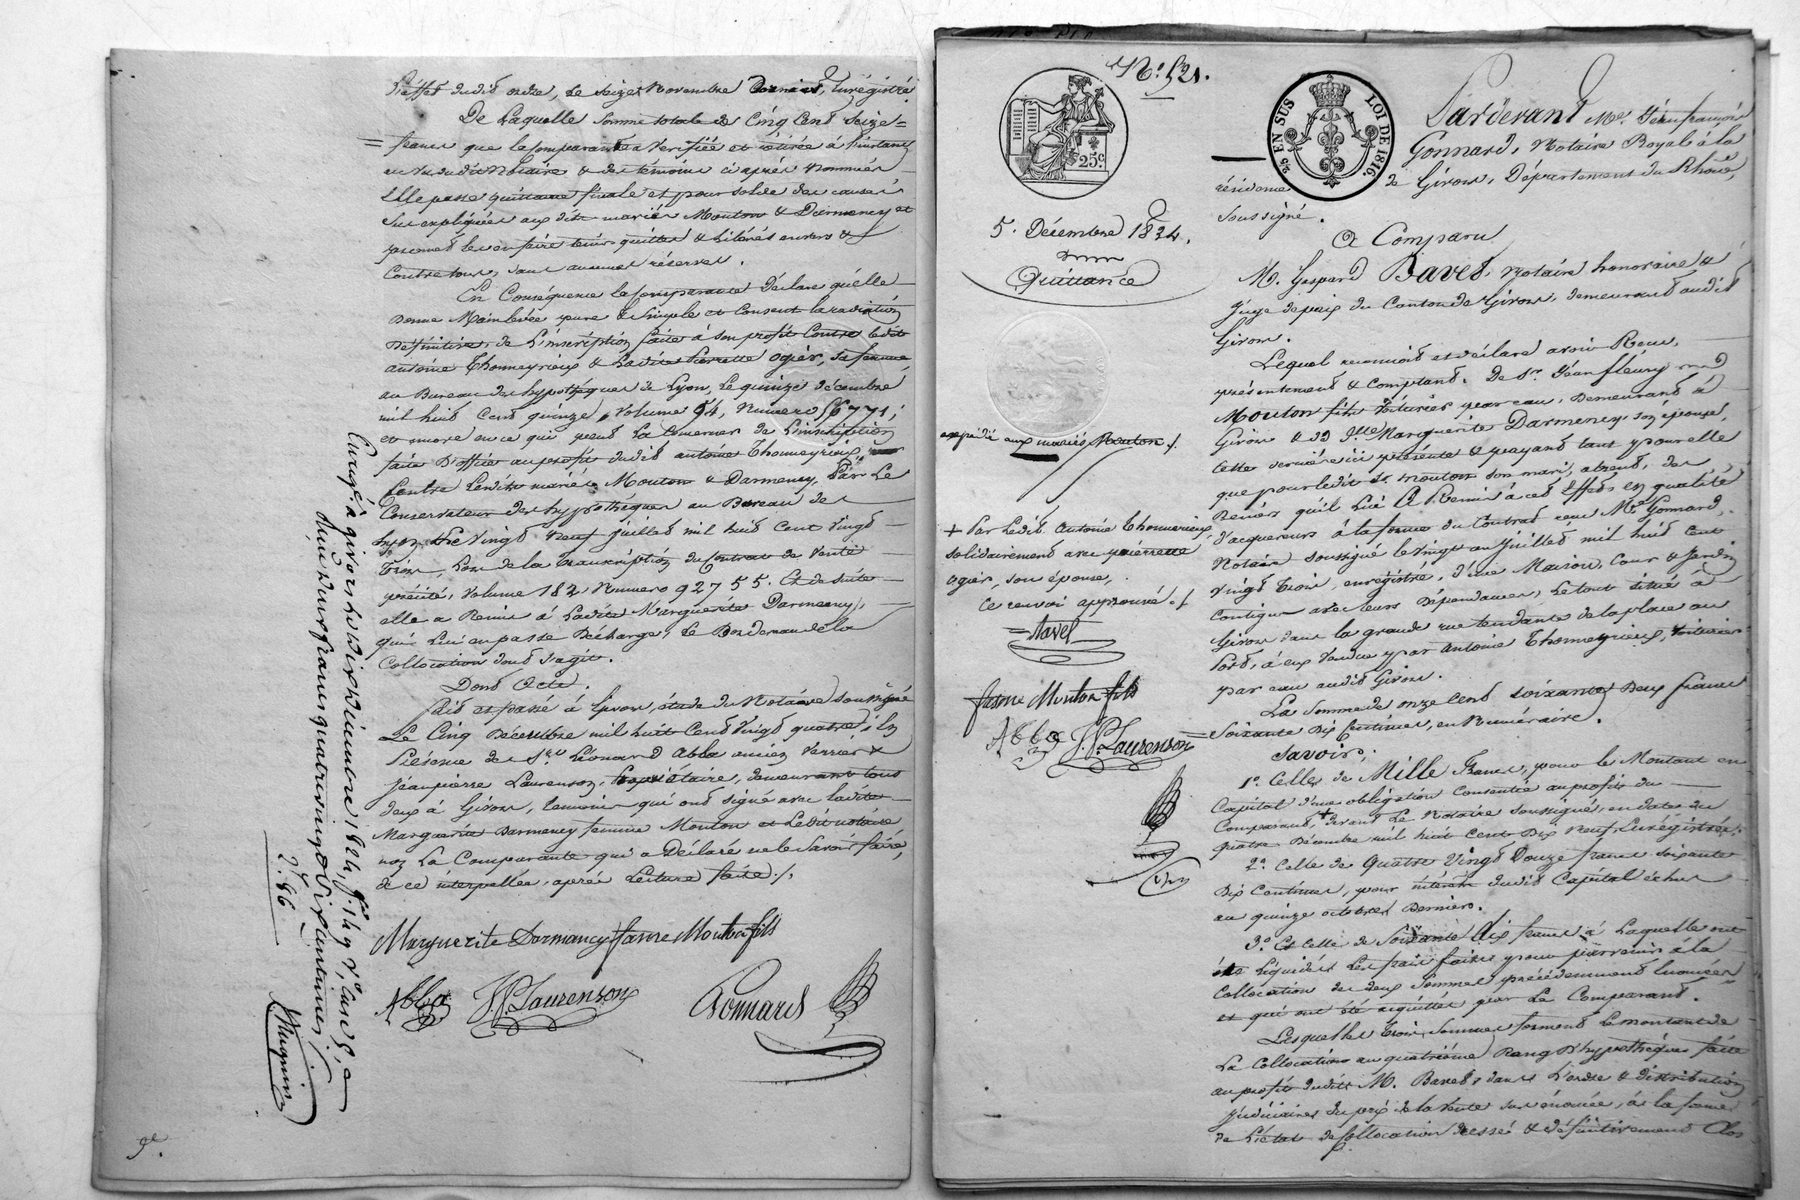 l'effet dudit ordre, le seize Novembre Dernier, Enregistré
De Laquelle somme totale de Cinq Cent Seize=
=francs que la Comparante a Vérifiée et retirée à l'instant
au vu dudit Notaire & des témoins ci après Nommés
Elle passe quittance finale et pour solde des causes
sus expliquées aux dits mariés Mouton & Darmency et
promet les en faire tenir quittes & libérés envers &
Contre tous, sans aucunes réserves.
En Conséquence la Comparante déclare qu'elle
Donne Mainlevée pure & simple et Consent la radiation
Définitive, de L'inscription faite à son profit Contre ledit
antoine Thomeyrieux & Ladite Pierrette Ogier, sa femme,
au Bureau des hypothèques de Lyon, Le quinze décembre
mil huit Cent quinze, Volume 94, Numéro 56771;
et encore en ce qui peut La Concerner de L'inscription
faite D'office au profit dudit antoine Thomeyrieux,
Contre Lesdits mariés Mouton & Darmency, Par Le
Conservateur des hypothèques au Bureau de
Lyon Le Vingt Neuf Juillet mil huit Cent Vingt
Trois, Lors de la Transcription du Contrat de Vente
précité, Volume 182 Numéro 92755. Et de suite
elle a Remis à Ladite Marguerite Darmency,
qui Lui en passe Décharge, Le Bordereau de la
Collocation dont s'agit.
Dont Acte.
Fait et passé à Givors, étude du Notaire soussigné
Le Cinq Décembre mil huit Cent Vingt quatre; En
Présence de Sr. Léonard Abba ancien Verrier &
Jeanpierre Laurenson, Propriétaire, demeurant tous
deux à Givors, témoins qui ont signé avec ladite
Marguerite Darmency femme Mouton et Ledit notaire
non La Comparante qui a Déclaré ne le Savoir faire,
de ce interpellée, après Lecture faite./.
Marguerite Dormancy fame Mouton fils
Abba J.P. Laurenson Gonnard
Enregé à givors le dix décembre 1824, fo. 149 Vo. Case 5,
Reçu deux francs quatrevingt Six Centimes./.
2.86
9e.
No. 521.
25c
25 EN SUS LOI DE 1816.
5. Décembre 1824.
Quittance
expédié aux mariés Mouton./.
+ Par Ledit Antoine Thomeyrieux
solidairement avec pierrette
Ogier, son épouse,
Ce renvoi approuvé./.
=Bavet
fame Mouton fils
Abba J.P. Laurenson
Pardevant Me. Jean françois
Gonnard, Notaire Royal à la
résidence de Givors, Département du Rhône,
soussigné.
A Comparu
M. Gaspard Bavet, Notaire honoraire &
Juge de paix du Canton de Givors, demeurant audit
Givors.
Lequel reconnoit et déclare avoir Reçu,
présentement & Comptant, De Sr. Jean fleury
Mouton fils Voiturier par eau, Demeurant à
Givors & de Dlle. Marguerite Darmency son épouse,
Cette dernière ici présente & payant tant pour elle
que pour ledit Sr. Mouton son mari, absent, des
Deniers qu'il Lui a Remis à cet Effet, en qualité
d'acquéreurs à la forme du Contrat reçu Me. Gonnard,
Notaire soussigné le vingt un Juillet mil huit cent
vingt Trois, enregistré, d'une Maison, Cour & Jardin
Contigus avec leurs Dépendances, Le tout situé à
Givors dans la grande rue tendante de la place au
Port, à eux Vendue par Antoine Thomeyrieux, Voiturier
par eau audit Givors.
La Somme de onze Cent Soixante Deux francs
=Soixante Dix Centimes, en Numéraire.
Savoir;
1o. Celle de Mille Francs, pour le Montant en
Capital d'une obligation Consentie au profit du
Comparant, + devant Le Notaire soussigné, en date du
quatre Décembre mil huit Cent Dix Neuf, Enregistrée.
2o. Celle de Quatre Vingt Douze francs soixante
Dix Centimes, pour intérêts dudit Capital échus
au quinze octobre Dernier.
3o. Et Celle de Soixante Dix francs à Laquelle ont
été Liquidés Les frais faits pour parvenir à la
Collocation des deux Sommes précédemment énoncées
et qui ont été acquittés par Le Comparant.
Lesquelles Trois Sommes forment Le montant de
La Collocation au quatrième Rang D'hypothèques faite
au profit dudit M. Bavet, dans L'ordre & distribution
Judiciaires du prix de la Vente sus énoncée, à la forme
de L'état de Collocation dressé & définitivement Clos